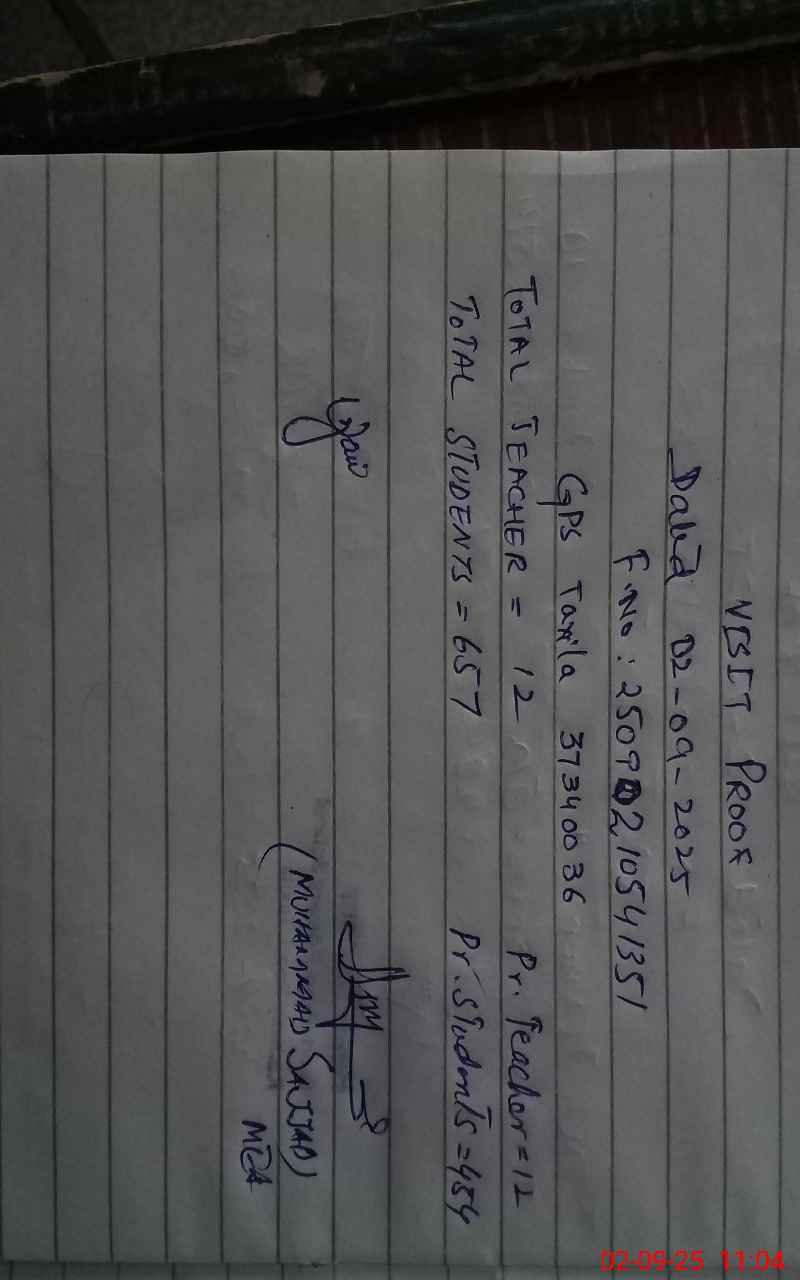 VISIT PROOF
Dated 02-09-2025
F.No: 25090210541351
GPS Taxila 37340036
TOTAL TEACHER = 12 Pr. Teacher = 12
TOTAL STUDENTS = 657 Pr. Students = 454
(MUHAMMAD SAJJAD)
MEA
02-09-25 11:04